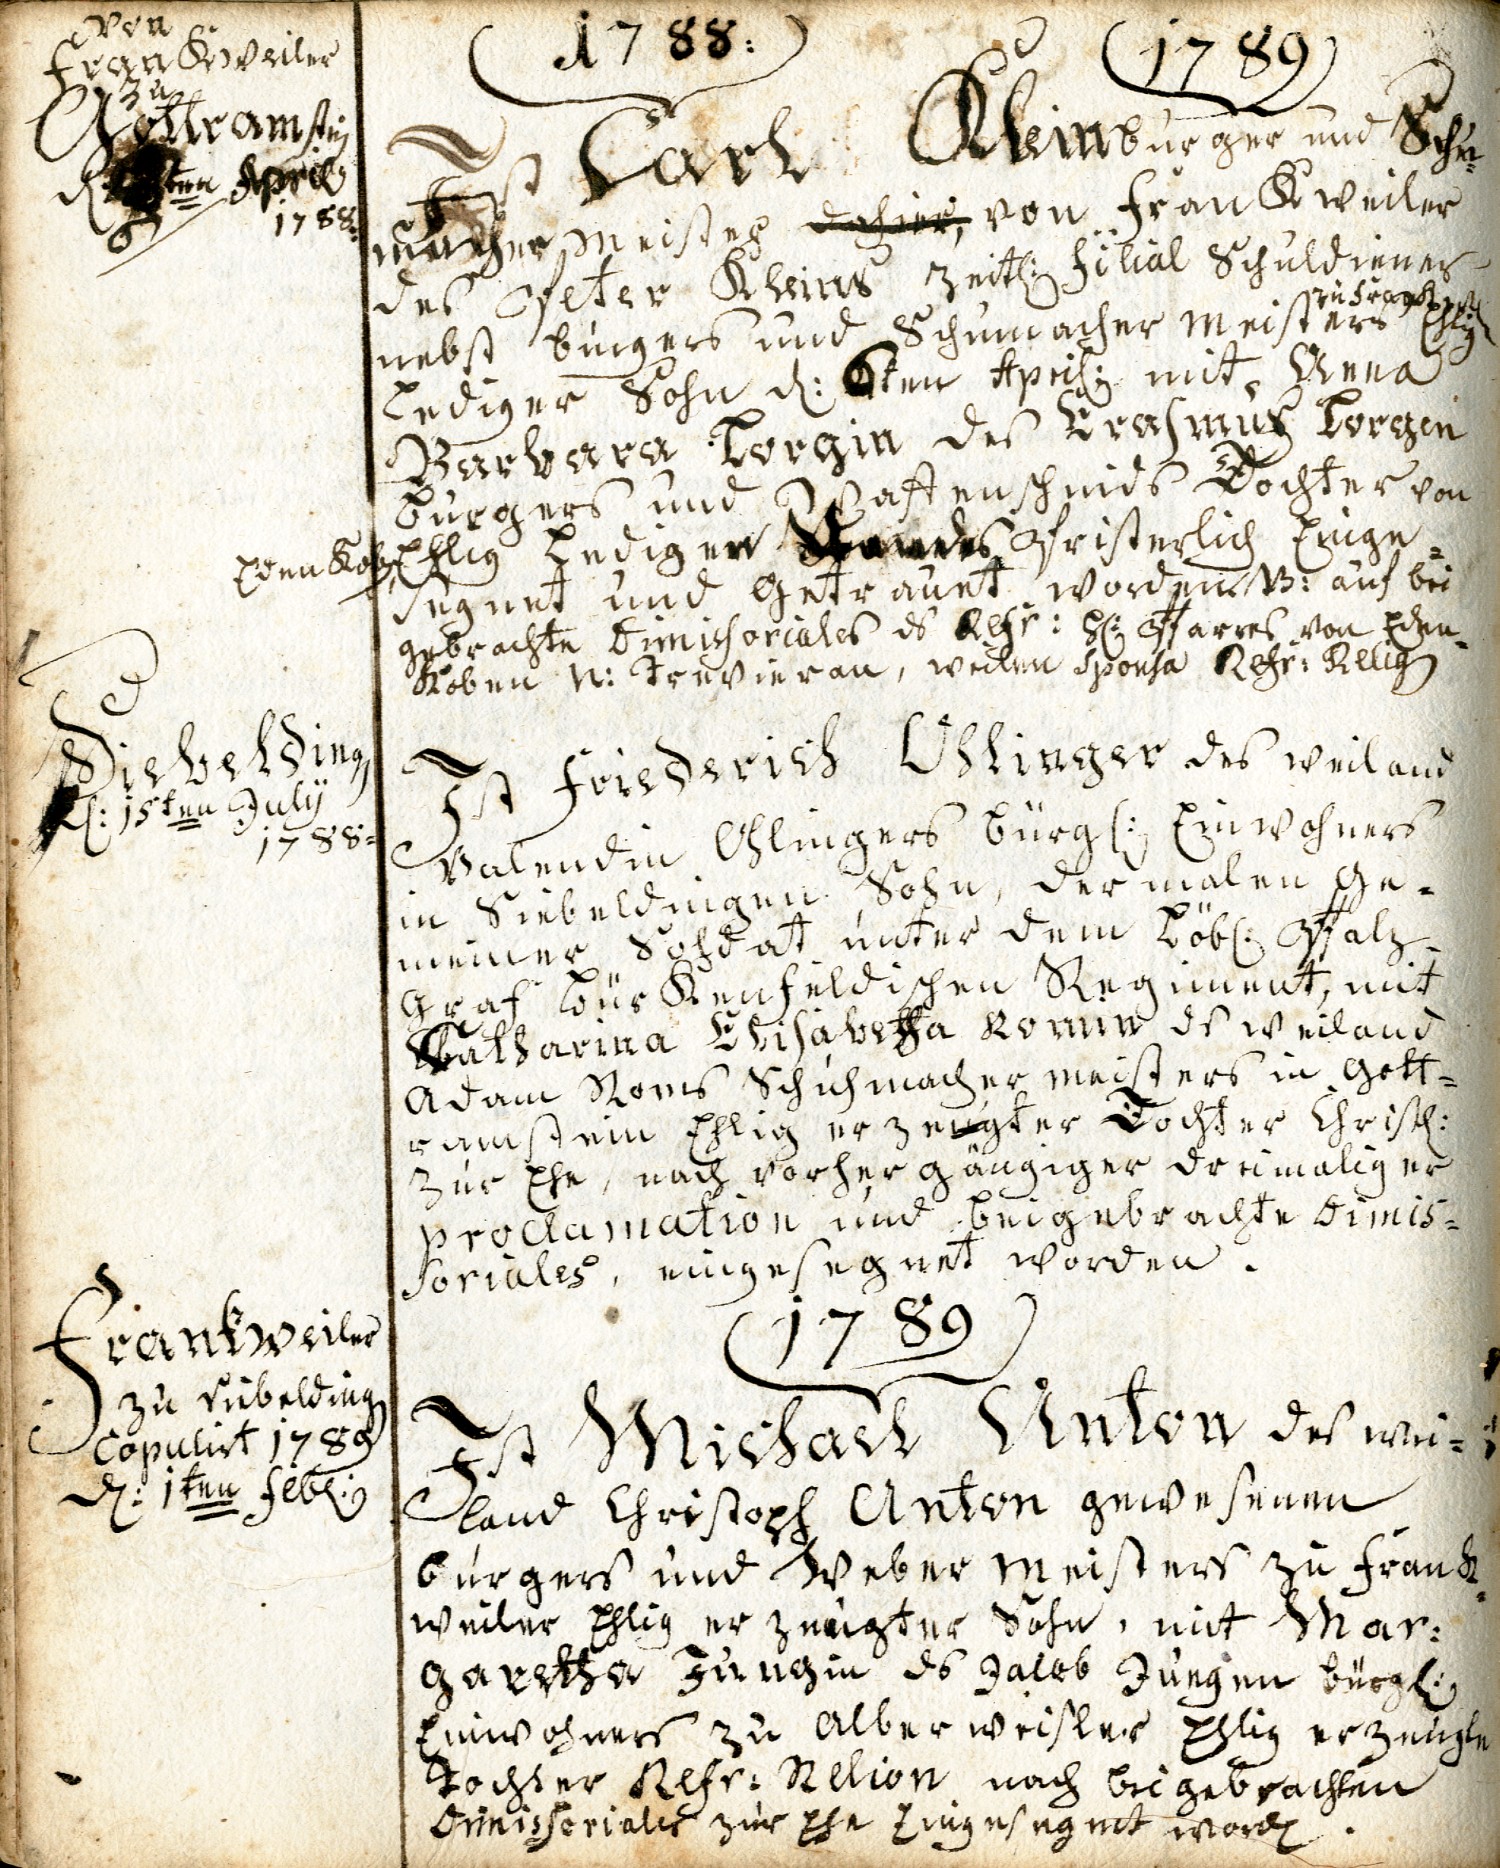 1788:
1789
von
Frankweiler
zu
Gottramstein
d: 6ten April
1788:
Ist Carl Klein burger und Schu-
macher Meister dahier, von Franckweiler
des Peter Kleins zeitl: Filial Schuldieners
zu Franckw:
nebst burgers und Schumacher Meisters Ehlig
Lediger Sohn d: 6ten April: mit Anna
Barbara Lorchin des Erasmus Lorgen
burgers und Waffenschmids Tochter von
Edenkob, Ehlig Lediger Priesterlich Einge-
segnet und getrauet worden NB: auf bei
gebrachte Dimissoriales ds Refr: H: Pfarres von Eden-
koben N: Trevieran, weilen sponsa Refr: Relig
Siebelding
d: 15ten July
1788:
Ist Friederich Ohlinger des weiland
Valendin Ohlingers bürgl: Einwohners
in Siebeldingen Sohn, dermalen ge-
meiner Soldat unter dem Löbl: Pfalz-
graf Bürkenfeldischen Regiment, mit
Catharina Elisabetha Romin ds weiland
Adam Roms Schuhmacher meisters in Gott-
ramstein Ehlig erzeugter Tochter Christl:
zur Ehe, nach vorhergängiger dreimaliger
proclamation und beigebrachte Dimis-
soriales, eingesegnet worden.
1789
Frankweiler
zu Siebelding
Copulirt 1789
d: 1ten Febr:
Ist Michael Anton des wei-
land Christoph Anton gewesenen
burgers und Weber Meisters zu Franck-
weiler Ehlig erzeugter Sohn, mit Mar:
garetha Jungin ds Jacob Jungen bürgl:
Einwohners zu Alberweisler Ehlig erzeugte
Tochter Refr: Relion nach beigebrachten
Dimissoriales zur Ehe Eingesegnet word.